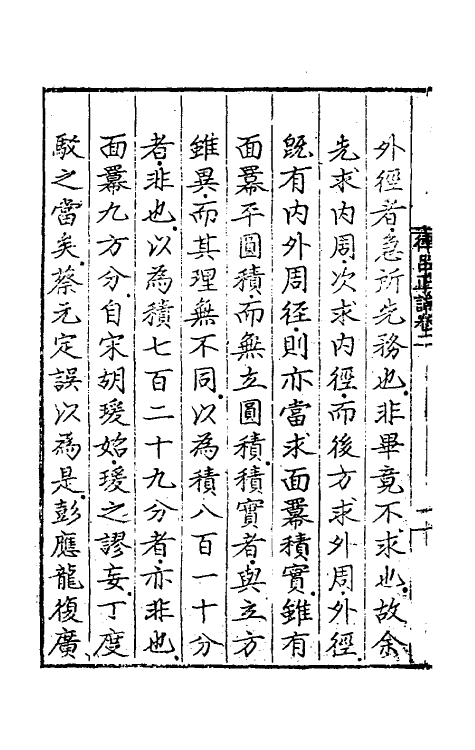 外徑者急所先務也非畢竟不求也故余
先求内周次求内徑而後方求外周外徑
旣有内外周徑則亦當求面羃積實雖有
面羃平圓積而無立圓積積實者與立方
雖異而其理無不同以為積八百一十分
者非也以為積七百二十九分者亦非也
面羃九方分自宋胡瑗始瑗之謬妄丁度
駁之當矣蔡元定誤以為是彭應龍復廣